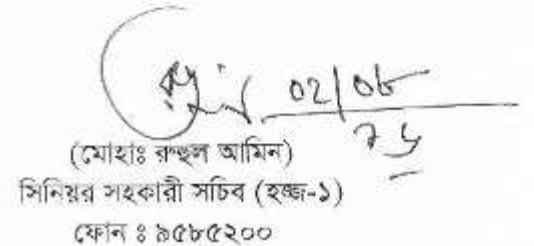 ০২/০৮
(মোহাঃ রুহুল আমিন)
সিনিয়র সহকারী সচিব (হজ্জ-১)
ফোন ঃ ৯৫৮৫২০০